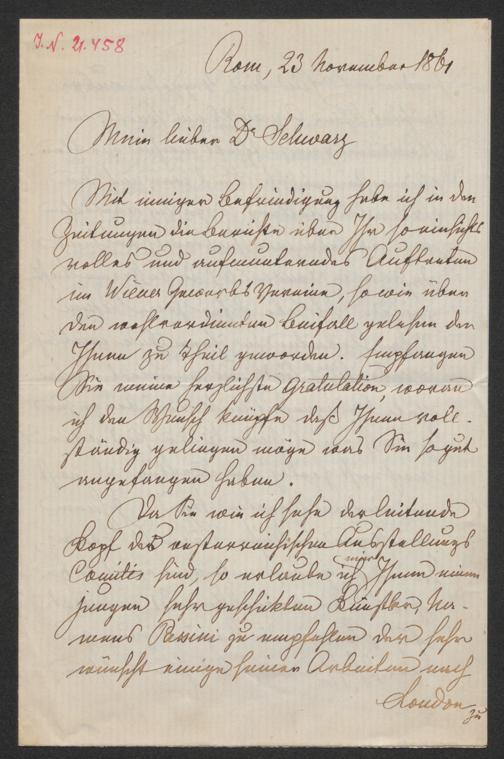 I.N. 21.458
Rom, 23 November 1861
Mein lieber Dr Schwarz
Mit inniger Befriedigung habe ich in den
Zeitungen die Berichte über Ihr so einsichts
volles und aufmunterndes Auftreten
im Wiener Gewerbs Vereine, so wie über
den wohlverdienten Beifall gelesen der
Ihnen zu Theil geworden. Empfangen
Sie meine herzlichste Gratulation, woran
ich den Wunsch knüpfe daß Ihnen voll-
ständig gelingen möge was Sie so gut
angefangen haben.
Da Sie wie ich sehe der leitende
Kopf des oesterreichischen Ausstellungs
Comités sind, so erlaube ich mir Ihnen einen
jungen sehr geschickten Künstler, Na-
mens Pessini zu empfehlen der sehr
wünscht einige seiner Arbeiten nach
London
zu